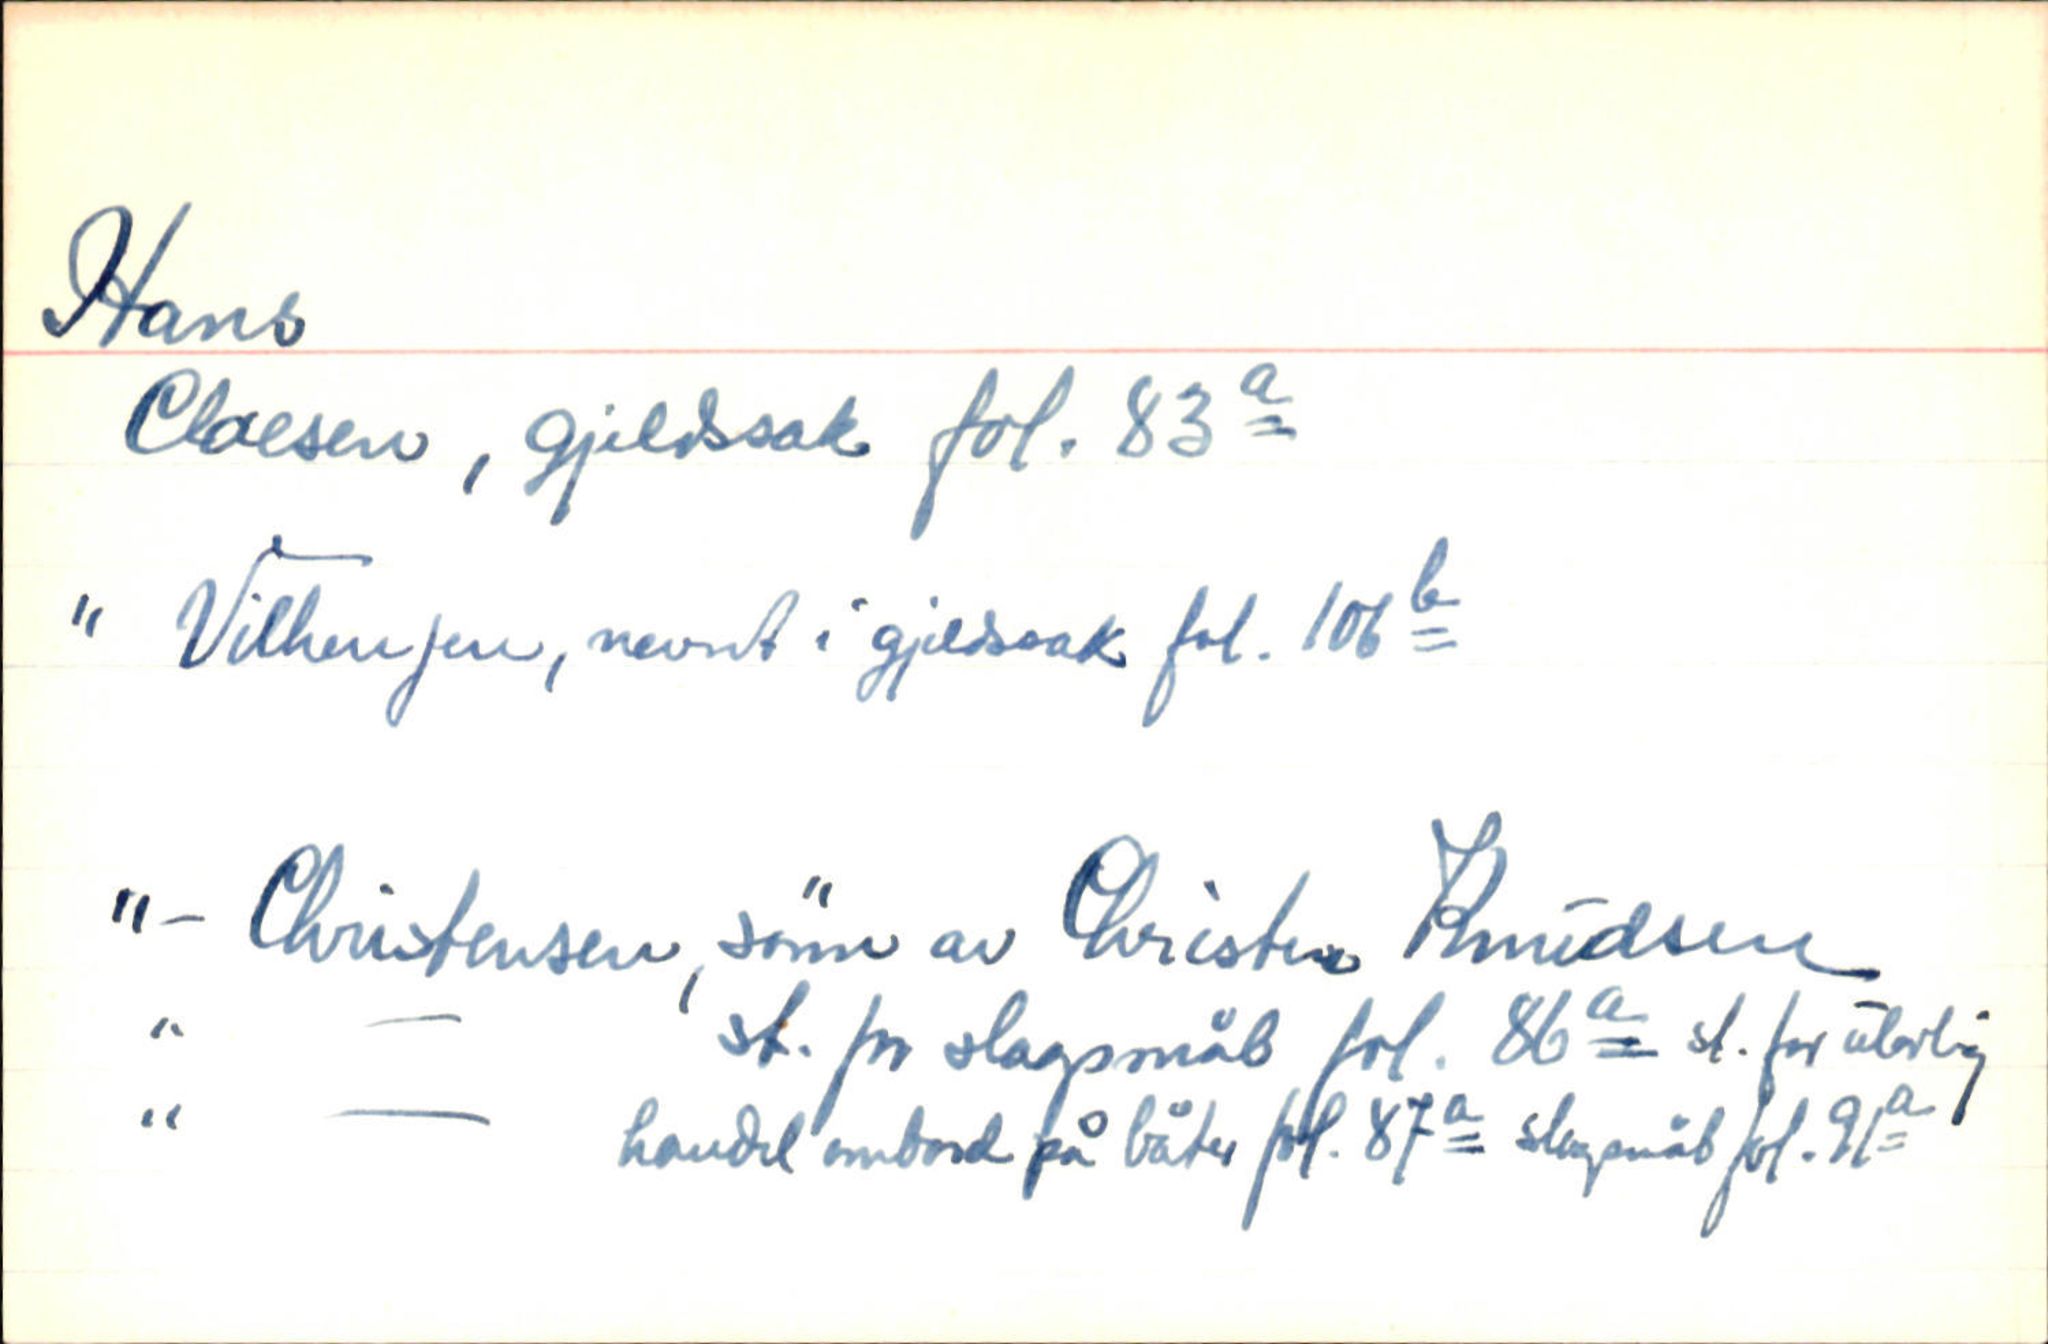 Hans
Claesen, gjeldssak fol. 83 a
" Vilhemsen, nevnt i gjeldssak fol. 106 b
"- Christensen, sönn av Christen Knudsen
" — st. for slagsmål fol. 86 a st. for ulovlig
" — handel ombord på båter fol. 87 a slagsmål fol. 91 a